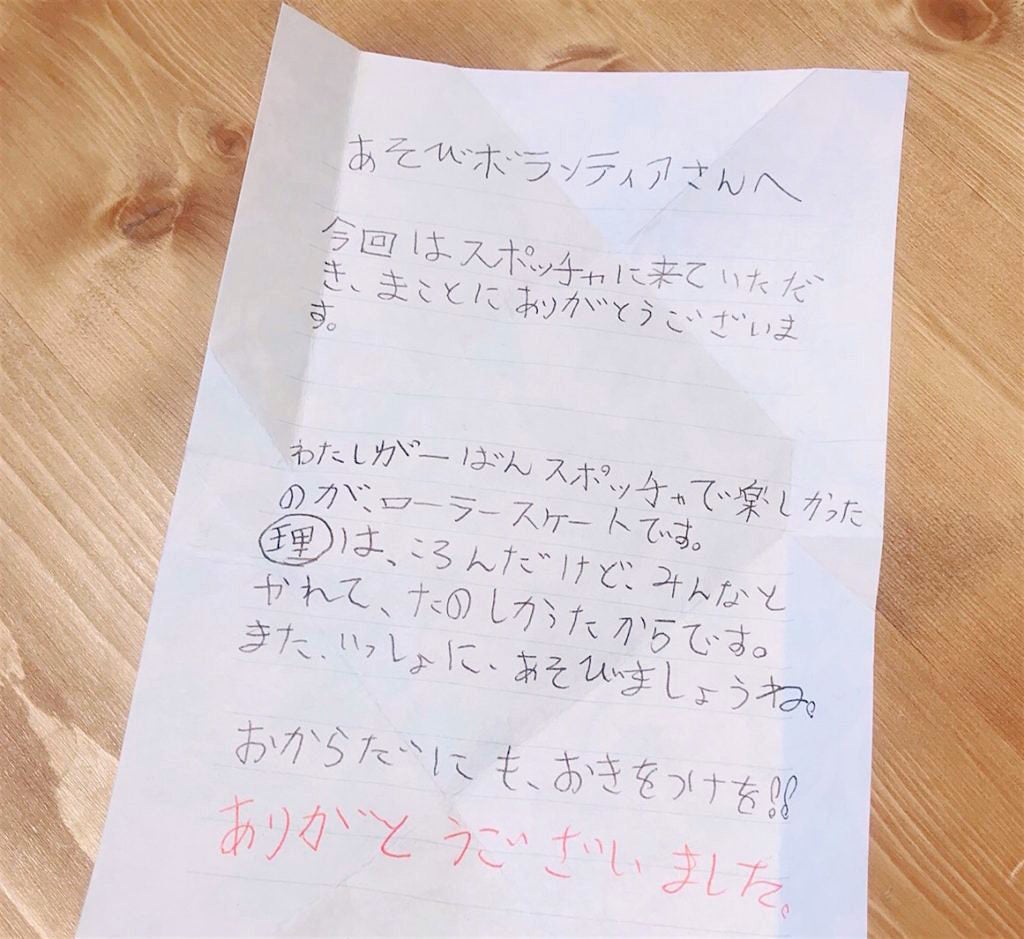 あそびボランティアさんへ
今回はスポッチャに来ていただ
き、まことにありがとうございま
す。
わたしが一ばんスポッチャで楽しかった
のが、ローラースケートです。
理は、ころんだけど、みんなと
やれて、たのしかうたからです。
また、いっしょに、あそびましょうね。
おからだにも、おきをつけを!!
ありがとうございました。